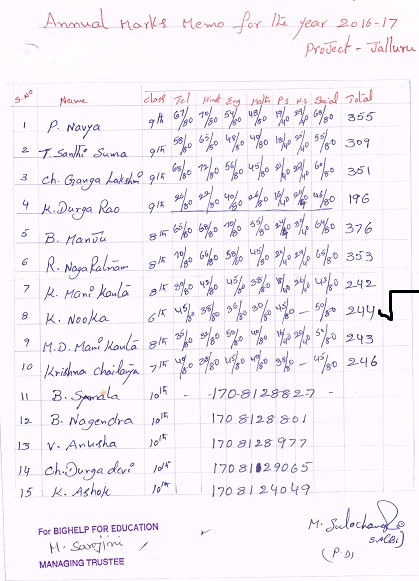 Annual Marks Memo for the year 2016-17
Project - Jalluru
S.No Name class Tel Hindi Eng Maths P.S N.S Social Total
1 P. Navya 9th 67/80 70/80 54/80 48/80 355
2 T. Sandhi Suma 9th 58/80 65/80 48/80 49/80 55/80 309
3 Ch. Ganga Lakshmi 9th 68/80 72/80 56/80 45/80 60/80 351
4 K. Durga Rao 9th 22/80 40/80 26/80 46/80 196
5 B. Manju 8th 65/80 68/80 70/80 55/80 64/80 376
6 R. Naga Ratnam 8th 70/80 66/80 58/80 45/80 65/80 353
7 K. Mani Kanta 8th 45/80 38/80 43/80 242
8 K. Nooka 6th 45/80 38/80 36/80 30/80 45/80 - 50/80 244
9 M.D. Mani Kanta 8th 35/80 50/80 40/80 50/80 243
10 Krishna Chaitanya 7th 49/80 38/80 45/80 49/80 - 45/80 246
11 B. 10th - - 1708128827 -
12 B. Nagendra 10th 1708128801
13 V. Anusha 10th 1708128977
14 Ch. Durga devi 10th 1708129065
15 K. Ashok 10th 1708124049
For BIGHELP FOR EDUCATION
M. Sarojini
MANAGING TRUSTEE
M. Sulochana
(P.D)